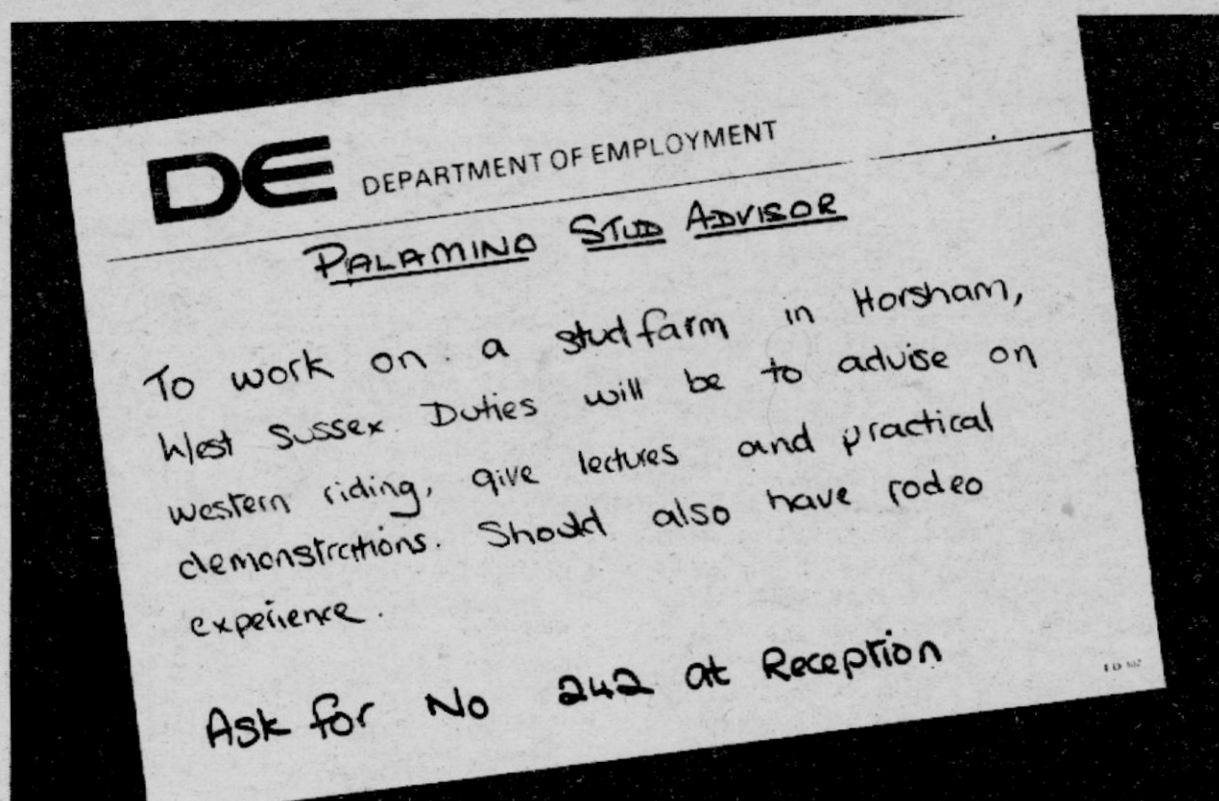 DE DEPARTMENT OF EMPLOYMENT
PALAMINO STUD ADVISOR
To work on a stud farm in Horsham,
West Sussex. Duties will be to advise on
western riding, give lectures and practical
demonstrations. Should also have rodeo
experience.
Ask for No 242 at Reception